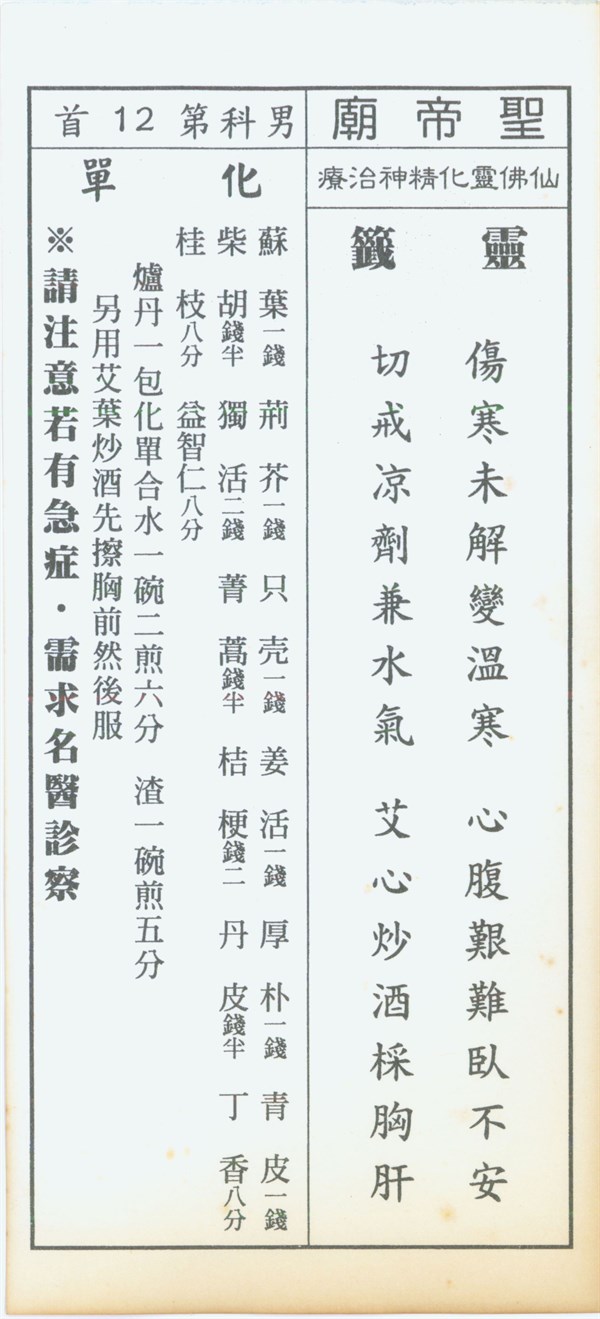 聖帝廟
仙佛靈化精神治療
靈籤
傷寒未解變溫寒 心腹艱難臥不安
切戒凉劑兼水氣 艾心炒酒採胸肝
男科第12首
化單
蘇葉一錢 荊芥一錢 只壳一錢 姜活一錢 厚朴一錢 青皮一錢
柴胡錢半 獨活二錢 菁蒿錢半 桔梗錢二 丹皮錢半 丁香八分
桂枝八分 益智仁八分
爐丹一包化單合水一碗二煎六分 渣一碗煎五分
另用艾葉炒酒先擦胸前然後服
※請注意若有急症・需求名醫診察